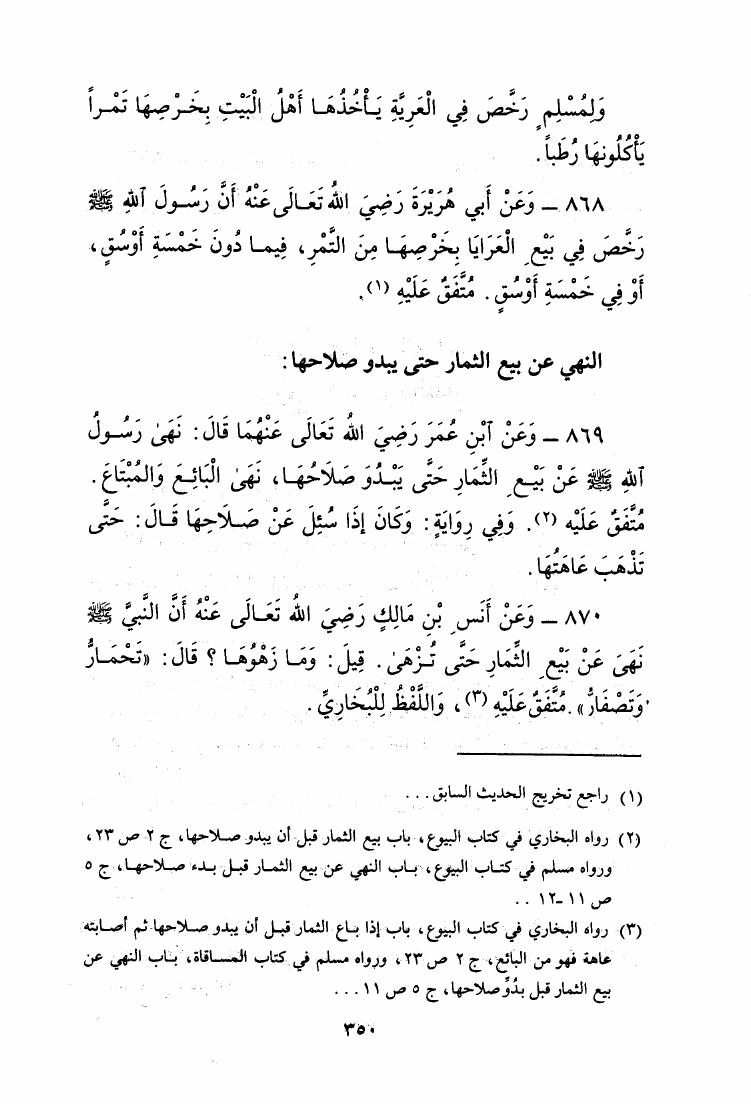 وَلِمُسْلِمٍ رَخَّصَ فِي الْعَرِيَّةِ يَـأْخُذُهَـا أَهْلُ الْبَيْتِ بِخَـرْصِهَا تَمْـراً
يَأْكُلُونهَا رُطَباً.
٨٦٨ ـ وَعَنْ أَبي هُرَيْرَةَ رَضِيَ اللهُ تَعَـالَى عَنْهُ أَنَّ رَسُـولَ آللهِ ﷺ
رَخَّصَ فِي بَيْعِ الْعَرَايَا بِخَرْصِهَـا مِنَ التَّمْرِ، فِيمـا دُونَ خَمْسَةِ أَوْسُقٍ،
أَوْ فِي خَمْسَةِ أَوْسُقٍ. مُتَّفَقٌ عَلَيْهِ (١).
النهي عن بيع الثمار حتى يبدو صلاحها:
٨٦٩ ـ وَعَنْ آبْنِ عُمَرَ رَضِيَ اللهُ تَعَالَى عَنْهُمَا قَالَ: نَهَىٰ رَسُـولُ
آللهِ ﷺ عَنْ بَيْـعِ الثِّمَارِ حَتَّى يَبْـدُوَ صَلَاحُهَـا، نَهَىٰ الْبَائِـعَ وَالمُبْتَاعَ.
مُتَّفَقٌ عَلَيْه (٢). وَفِي رِوَايَةٍ: وَكَانَ إِذَا سُئِلَ عَنْ صَـلَاحِهَا قَـالَ: حَتَّى
تَذْهَبَ عَاهَتُهَا.
٨٧٠ ـ وَعَنْ أَنَسِ بْنِ مَالِكٍ رَضِيَ اللهُ تَعَـالَى عَنْهُ أَنَّ النَّبيَّ ﷺ
نَهَىَ عَنْ بَيْعِ الثِّمَارِ حَتَّى تُـزْهَىٰ. قِيلَ: وَمَـا زَهْوُهَـا؟ قَالَ: «تَحْمَـارُّ
وَتَصْفَارُّ». مُتَّفَقٌ عَلَيْهِ (٣)، وَاللَّفْظُ لِلْبُخَارِيِّ.
(١) راجع تخريج الحديث السابق...
(٢) رواه البخاري في كتاب البيوع، باب بيع الثمار قبل أن يبدو صـلاحها، ج ٢ ص ٢٣،
ورواه مسلم في كتـاب البيوع، بـاب النهي عن بيع الثمـار قبـل بـدء صـلاحهـا، ج ٥
ص ١١ ـ ١٢ ..
(٣) رواه البخاري في كتاب البيوع، باب إذا بـاع الثمار قبـل أن يبدو صـلاحها ثم أصـابته
عاهة فهو من البائع، ج ٢ ص ٢٣، ورواه مسلم في كتاب المساقاة، بـاب النهي عن
بيع الثمار قبل بدُوِّ صلاحها، ج ٥ ص ١١...
٣٥٠